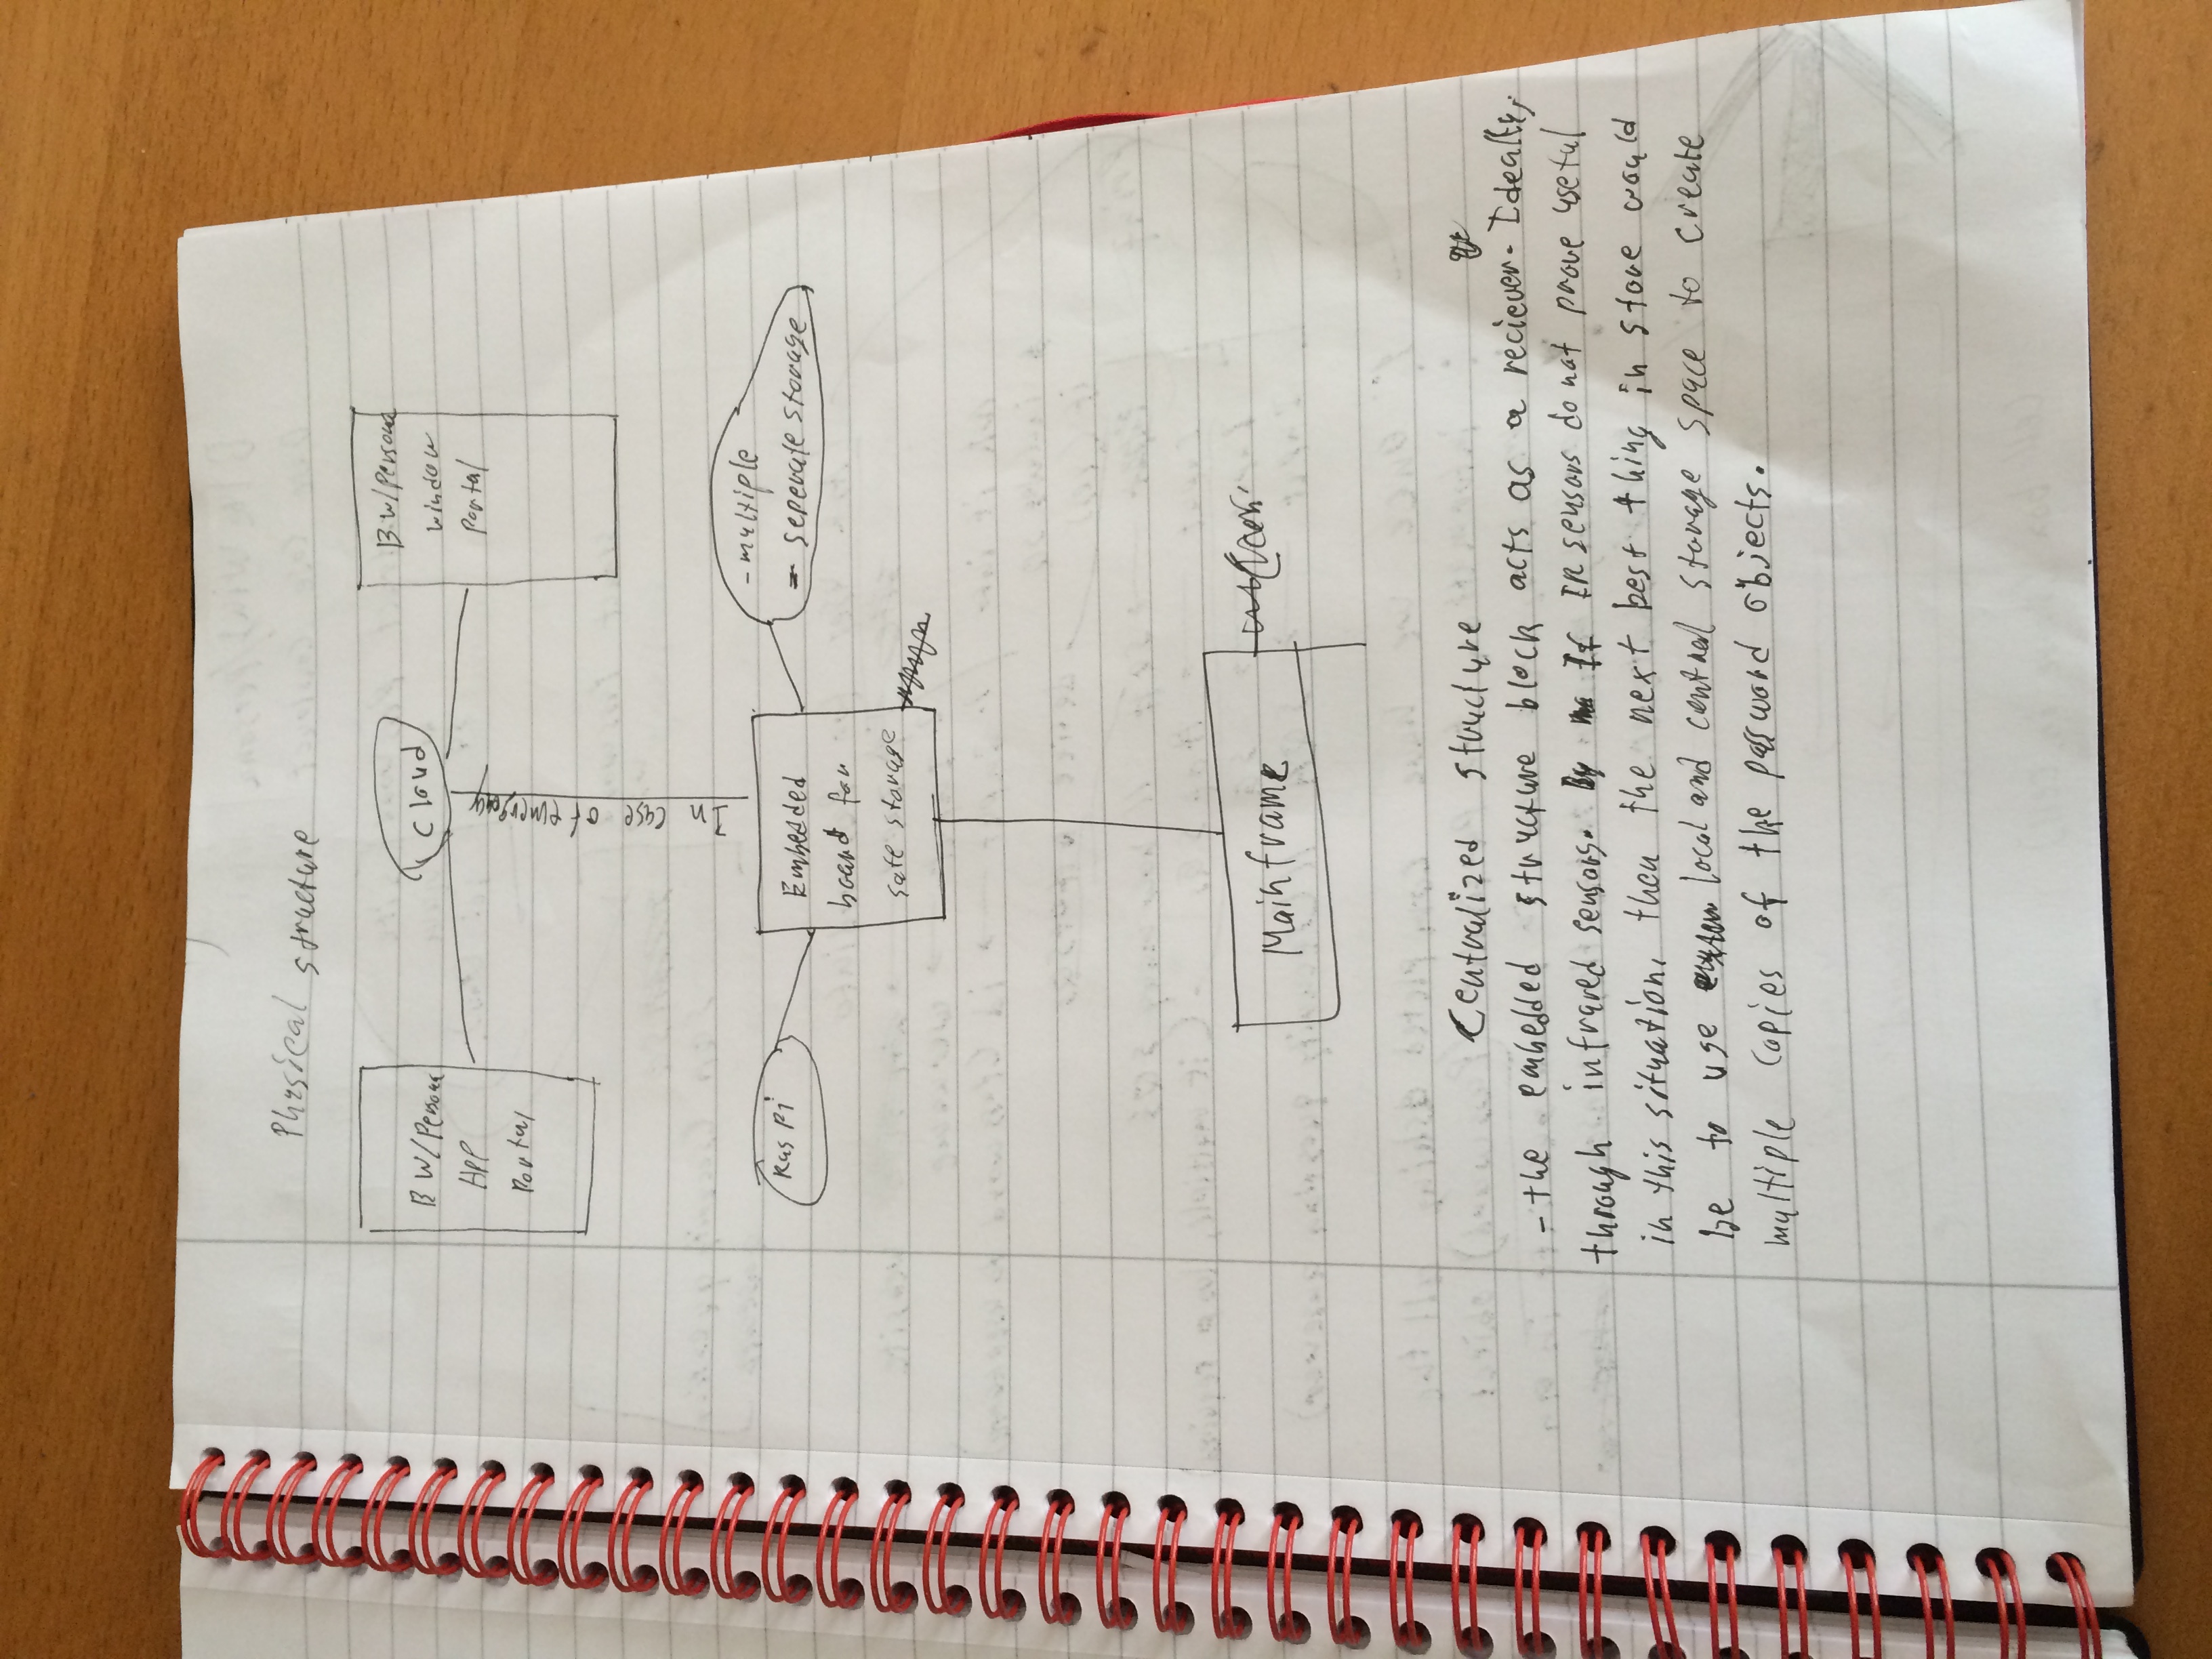 Physical structure
BW/Persona
APP
Portal
Cloud
BW/Persona
window
Portal
In case of emergency
Ras Pi
Embedded
board for
safe storage
- multiple
- seperate storage
Mainframe
Centralized structure
- the embedded structure block acts as a reciever. Ideally,
through infrared sensors. If IR sensors do not prove useful
in this situation, then the next best thing in store would
be to use local and central storage space to create
multiple copies of the password objects.